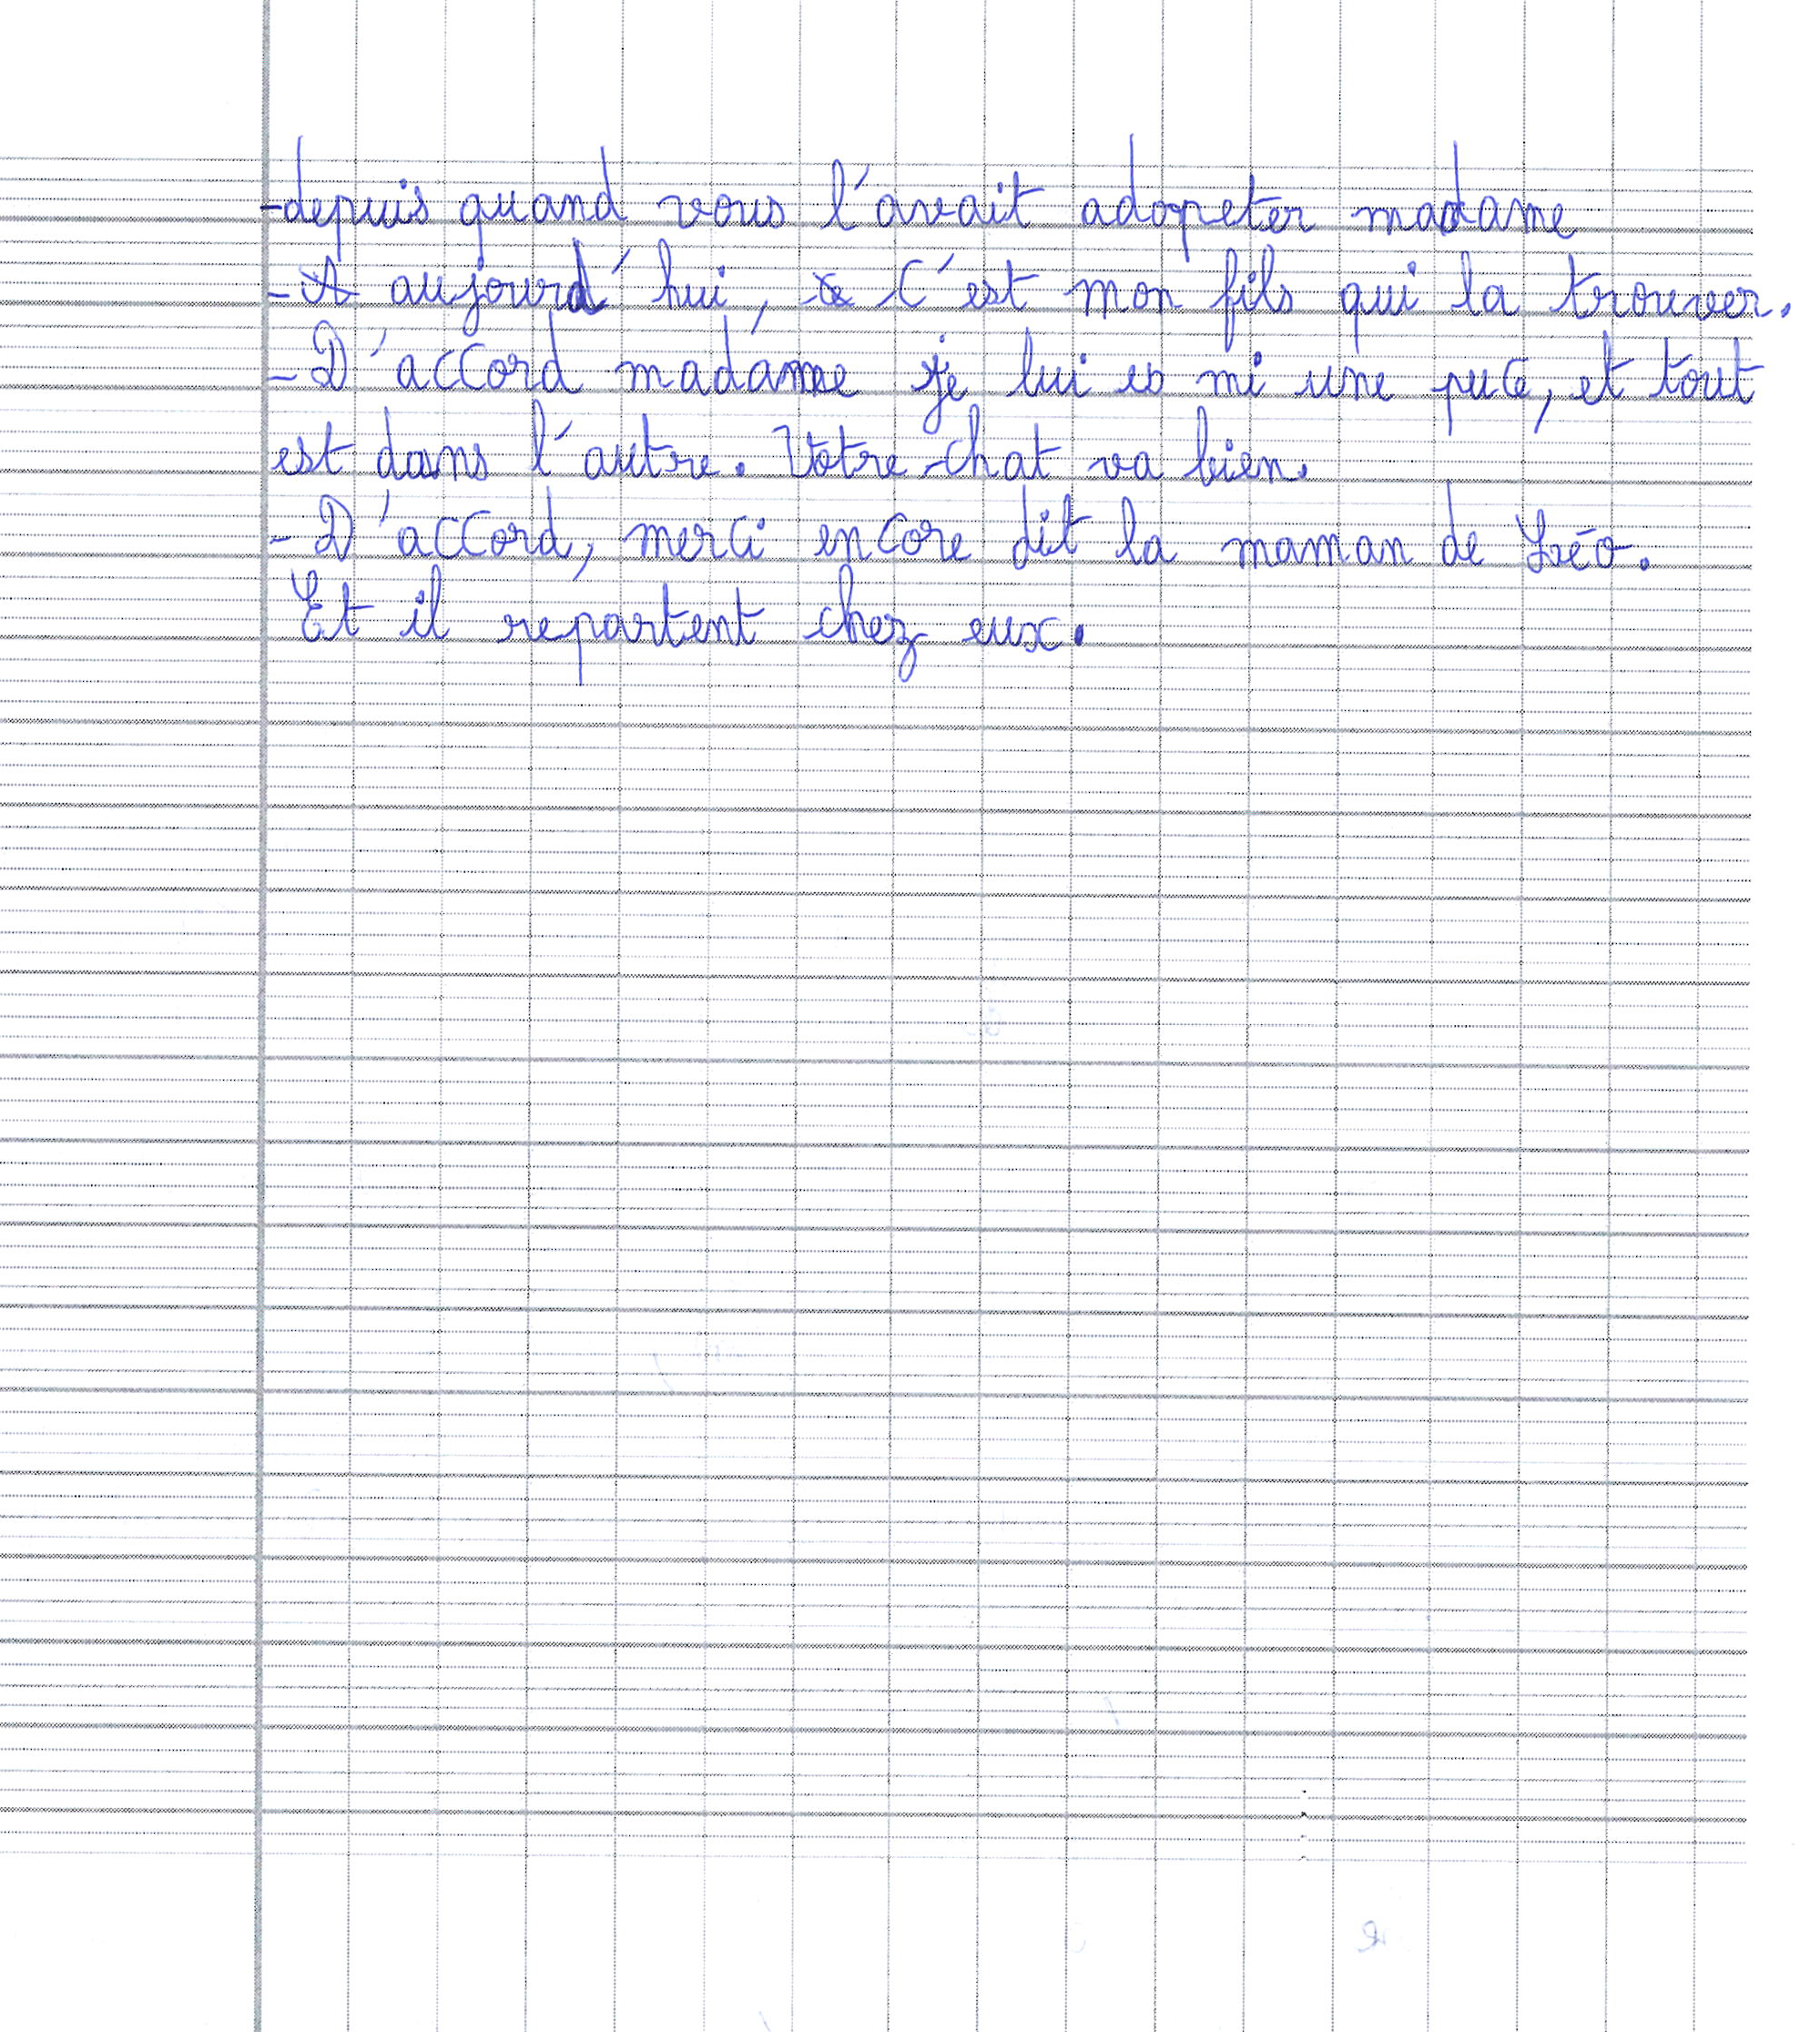 -depuis quand vous l'avait adopeter madame
- A aujourd'hui, c'est mon fils qui la trouver.
- D'accord madame je lui es mi une puce, et tout
est dans l'autre. Votre chat va bien.
- D'accord, merci encore dit la maman de Léo.
Et il repartent chez eux.